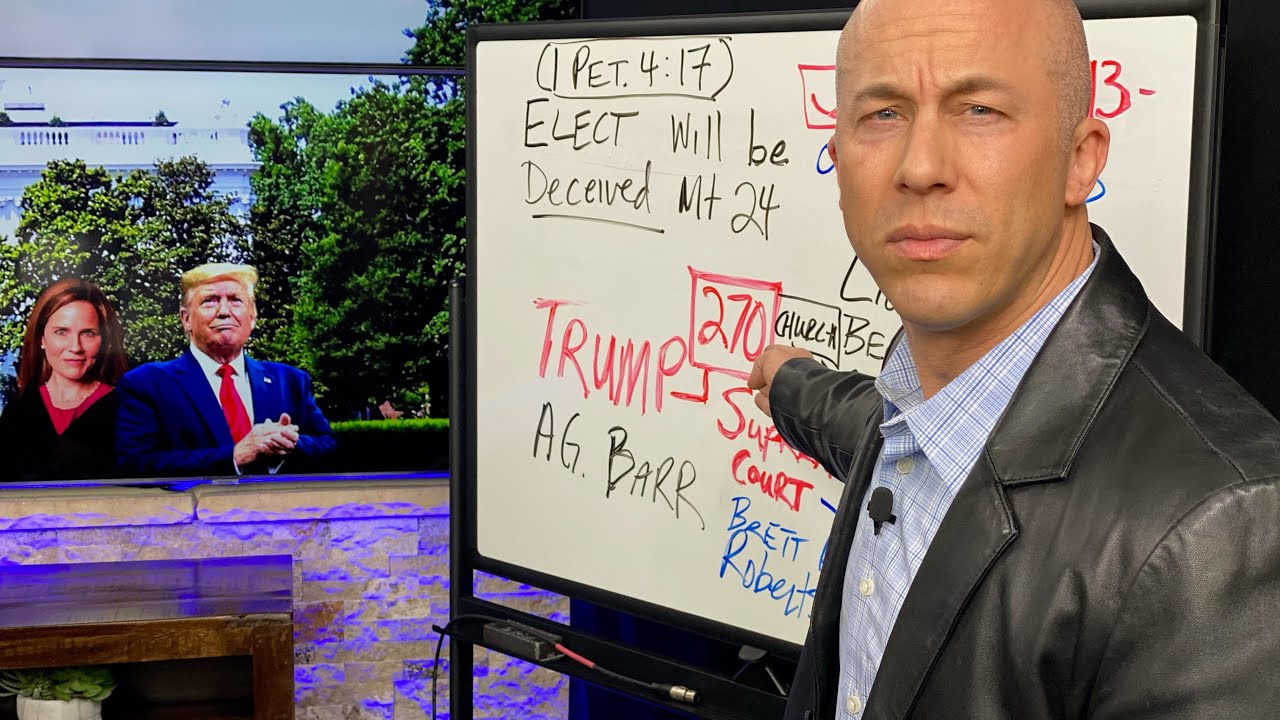 (1 PET. 4:17)
13-
ELECT will be
Deceived Mt 24
TRUMP 270 CHURCH
AG. BARR
COURT
BRETT
Roberts